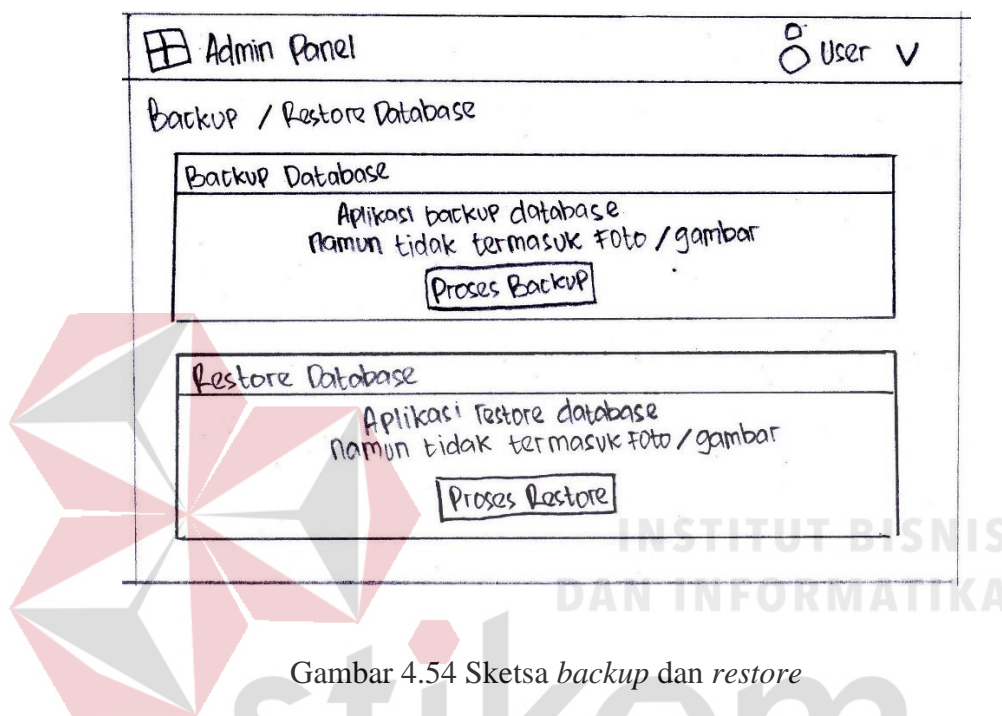 Admin Panel
User V
Backup / Restore Database
Backup Database
Aplikasi backup database
namun tidak termasuk Foto / gambar
Proses Backup
Restore Database
Aplikasi restore database
namun tidak termasuk Foto / gambar
Proses Restore
INSTITUT BISNIS
DAN INFORMATIKA
Gambar 4.54 Sketsa backup dan restore
stikom